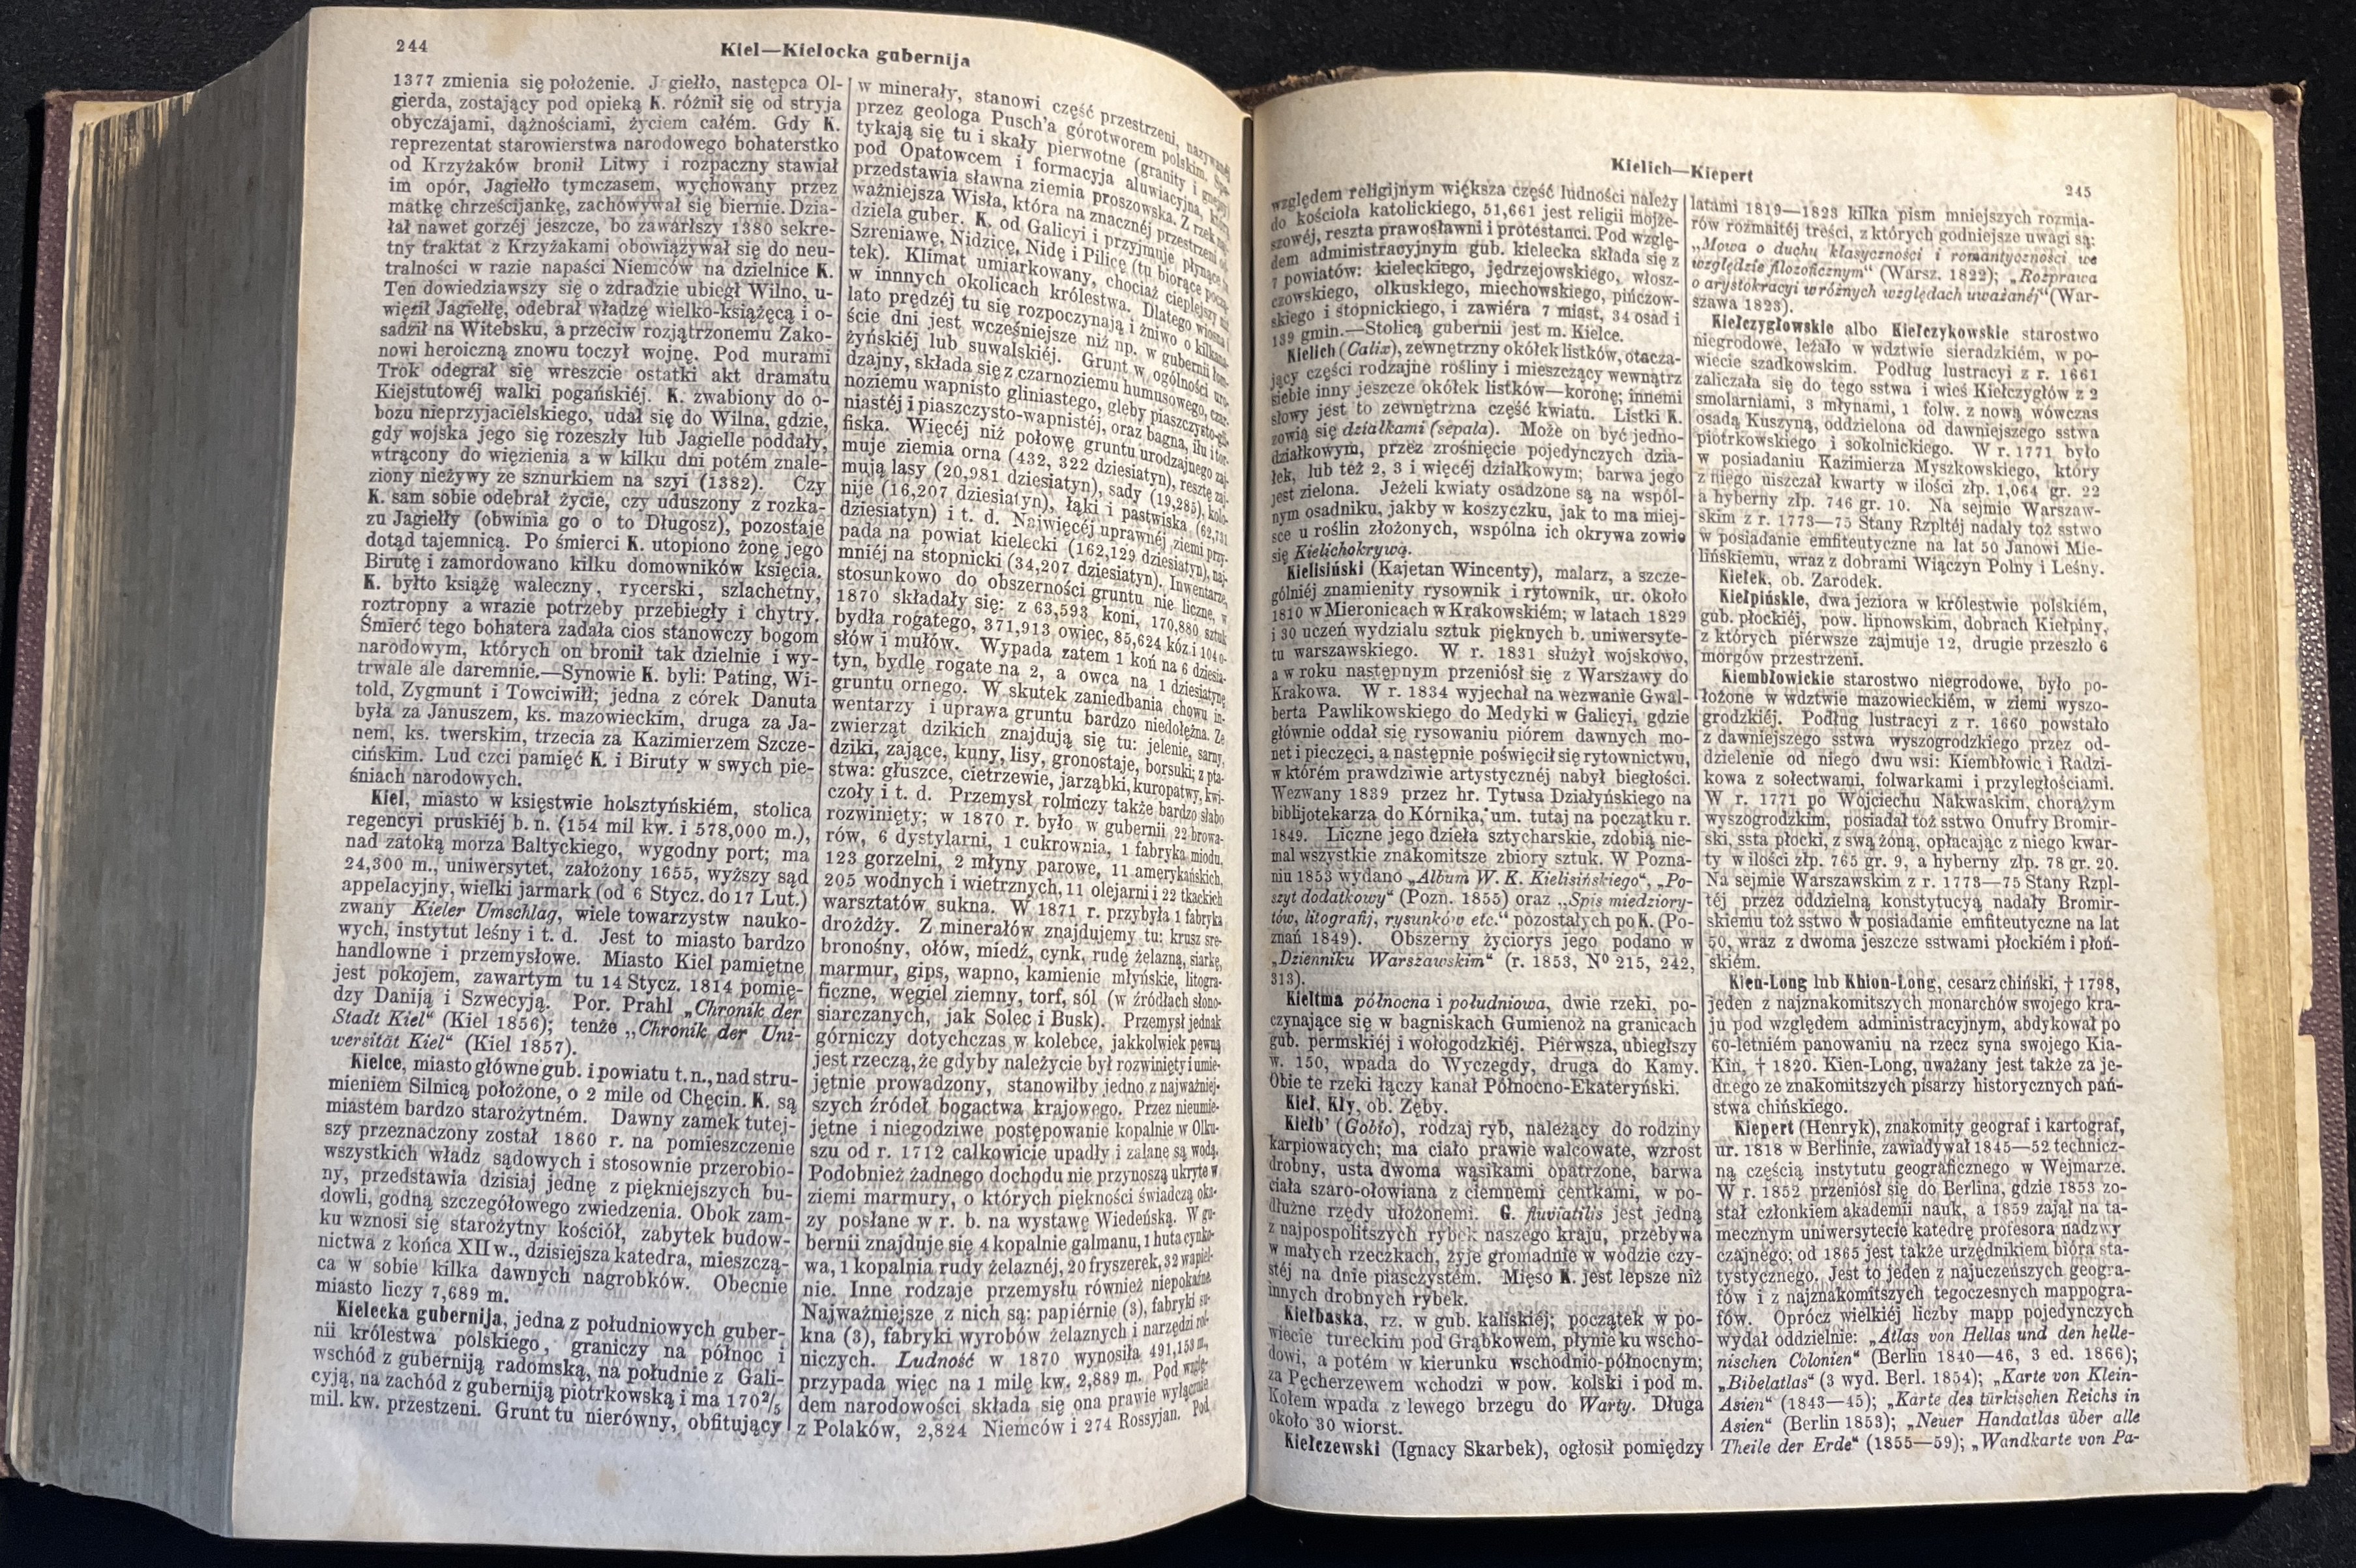 244
Kiel—Kielocka gubernija
1377 zmienia się położenie. J giełło, następca Ol-
gierda, zostający pod opieką K. różnił się od stryja
obyczajami, dążnościami, życiem całém. Gdy K.
reprezentat starowierstwa narodowego bohaterstko
od Krzyżaków bronił Litwy i rozpaczny stawiał
im opór, Jagiełło tymczasem, wychowany przez
matkę chrześcijankę, zachowywał się biernie. Dzia-
łał nawet gorzéj jeszcze, bo zawarłszy 1380 sekre-
tny traktat z Krzyżakami obowiązywał się do neu-
tralności w razie napaści Niemców na dzielnice K.
Ten dowiedziawszy się o zdradzie ubiegł Wilno, u-
więził Jagiełłę, odebrał władzę wielko-książęcą i o-
sadził na Witebsku, a przeciw rozjątrzonemu Zako-
nowi heroiczną znowu toczył wojnę. Pod murami
Trok odegrał się wreszcie ostatki akt dramatu
Kiejstutowéj walki pogańskiéj. K. zwabiony do o-
bozu nieprzyjacielskiego, udał się do Wilna, gdzie,
gdy wojska jego się rozeszły lub Jagielle poddały,
wtrącony do więzienia a w kilku dni potém znale-
ziony nieżywy ze sznurkiem na szyi (1382). Czy
K. sam sobie odebrał życie, czy uduszony z rozka-
zu Jagiełły (obwinia go o to Długosz), pozostaje
dotąd tajemnicą. Po śmierci K. utopiono żonę jego
Birutę i zamordowano kilku domowników księcia.
K. byłto książę waleczny, rycerski, szlachetny,
roztropny a wrazie potrzeby przebiegły i chytry.
Śmierć tego bohatera zadała cios stanowczy bogom
narodowym, których on bronił tak dzielnie i wy-
trwale ale daremnie.—Synowie K. byli: Pating, Wi-
told, Zygmunt i Towciwiłł; jedna z córek Danuta
była za Januszem, ks. mazowieckim, druga za Ja-
nem, ks. twerskim, trzecia za Kazimierzem Szcze-
cińskim. Lud czci pamięć K. i Biruty w swych pie-
śniach narodowych.
Kiel, miasto w księstwie holsztyńskiém, stolica
regencyi pruskiéj b. n. (154 mil kw. i 578,000 m.),
nad zatoką morza Baltyckiego, wygodny port; ma
24,300 m., uniwersytet, założony 1655, wyższy sąd
appelacyjny, wielki jarmark (od 6 Stycz. do 17 Lut.)
zwany Kieler Umschlag, wiele towarzystw nauko-
wych, instytut leśny i t. d. Jest to miasto bardzo
handlowne i przemysłowe. Miasto Kiel pamiętne
jest pokojem, zawartym tu 14 Stycz. 1814 pomię-
dzy Daniją i Szwecyją. Por. Prahl „Chronik der
Stadt Kiel“ (Kiel 1856); tenże „Chronik der Uni-
wersität Kiel“ (Kiel 1857).
Kielce, miasto główne gub. i powiatu t. n., nad stru-
mieniem Silnicą położone, o 2 mile od Chęcin. K. są
miastem bardzo starożytném. Dawny zamek tutej-
szy przeznaczony został 1860 r. na pomieszczenie
wszystkich władz sądowych i stosownie przerobio-
ny, przedstawia dzisiaj jednę z piękniejszych bu-
dowli, godną szczegółowego zwiedzenia. Obok zam-
ku wznosi się starożytny kościół, zabytek budow-
nictwa z końca XII w., dzisiejsza katedra, mieszczą-
ca w sobie kilka dawnych nagrobków. Obecnie
miasto liczy 7,689 m.
Kielecka gubernija, jedna z południowych guber-
nii królestwa polskiego, graniczy na północ i
wschód z guberniją radomską, na południe z Gali-
cyją, na zachód z guberniją piotrkowską i ma 170²/₅
mil. kw. przestzeni. Grunt tu nierówny, obfitujący
w minerały, stanowi część przestrzeni, nazywanéj
przez geologa Pusch'a górotworem polskim. Spo-
tykają się tu i skały pierwotne (granity i gnejsy)
pod Opatowcem i formacyja aluwiacyjna, którą
przedstawia sławna ziemia proszowska. Z rzek naj-
ważniejsza Wisła, która na znacznéj przestrzeni od-
dziela guber. K. od Galicyi i przyjmuje płynące tu
Szreniawę, Nidzicę, Nidę i Pilicę (tu biorącę począ-
tek). Klimat umiarkowany, chociaż cieplejszy niż
w innnych okolicach królestwa. Dlatego wiosna i
lato prędzéj tu się rozpoczynają i żniwo o kilkana-
ście dni jest wcześniejsze niż np. w gubernii łom-
żyńskiéj lub suwalskiéj. Grunt w ogólności uro-
dzajny, składa się z czarnoziemu humusowego, czar-
noziemu wapnisto gliniastego, gleby piaszczysto-gli-
niastéj i piaszczysto-wapnistéj, oraz bagna, iłu i tor-
fiska. Więcéj niż połowę gruntu urodzajnego zaj-
muje ziemia orna (432, 322 dziesiatyn), resztę zaj-
mują lasy (20,981 dziesiatyn), sady (19,285), kolo-
nije (16,207 dziesiatyn), łąki i pastwiska (62,731
dziesiatyn) i t. d. Najwięcéj uprawnéj ziemi przy-
pada na powiat kielecki (162,129 dziesiatyn), naj-
mniéj na stopnicki (34,207 dziesiatyn). Inwentarze,
stosunkowo do obszerności gruntu nie liczne, w
1870 składały się: z 63,593 koni, 170,880 sztuk
bydła rogatego, 371,913 owiec, 85,624 kóz i 104 o-
słów i mułów. Wypada zatem 1 koń na 6 dziesia-
tyn, bydlę rogate na 2, a owca na 1 dziesiatynę
gruntu ornego. W skutek zaniedbania chowu in-
wentarzy i uprawa gruntu bardzo niedołężna. Ze
zwierząt dzikich znajdują się tu: jelenie, sarny,
dziki, zające, kuny, lisy, gronostaje, borsuki; z pta-
stwa: głuszce, cietrzewie, jarząbki, kuropatwy, kwi-
czoły i t. d. Przemysł rolniczy także bardzo słabo
rozwinięty; w 1870 r. było w gubernii 22 browa-
rów, 6 dystylarni, 1 cukrownia, 1 fabryka miodu,
123 gorzelni, 2 młyny parowe, 11 amerykańskich,
205 wodnych i wietrznych, 11 olejarni i 22 tkackich
warsztatów sukna. W 1871 r. przybyła 1 fabryka
drożdży. Z minerałów znajdujemy tu: krusz sre-
bronośny, ołów, miedź, cynk, rudę żelazną, siarkę,
marmur, gips, wapno, kamienie młyńskie, litogra-
ficzne, węgiel ziemny, torf, sól (w źródłach słono-
siarczanych, jak Solec i Busk). Przemysł jednak
górniczy dotychczas w kolebce, jakkolwiek pewną
jest rzeczą, że gdyby należycie był rozwinięty i umie-
jętnie prowadzony, stanowiłby jedno z najważniej-
szych źródeł bogactwa krajowego. Przez nieumie-
jętne i niegodziwe postępowanie kopalnie w Olku-
szu od r. 1712 całkowicie upadły i zalane są wodą.
Podobnież żadnego dochodu nie przynoszą ukryte w
ziemi marmury, o których piękności świadczą oka-
zy posłane w r. b. na wystawę Wiedeńską. W gu-
bernii znajduje się 4 kopalnie galmanu, 1 huta cynko-
wa, 1 kopalnia rudy żelaznéj, 20 fryszerek, 32 wapiel-
nie. Inne rodzaje przemysłu również niepokaźne.
Najważniejsze z nich są: papiérnie (3), fabryki su-
kna (3), fabryki wyrobów żelaznych i narzędzi rol-
niczych. Ludność w 1870 wynosiła 491,153 m.,
przypada więc na 1 milę kw. 2,889 m. Pod wzglę-
dem narodowości składa się ona prawie wyłącznie
z Polaków, 2,824 Niemców i 274 Rossyjan. Pod
Kielich—Kiepert
245
względem religijnym większa część ludności należy
do kościoła katolickiego, 51,661 jest religii mojże-
szowéj, reszta prawosławni i protestanci. Pod wzglę-
dem administracyjnym gub. kielecka składa się z
7 powiatów: kieleckiego, jędrzejowskiego, włosz-
czowskiego, olkuskiego, miechowskiego, pińczow-
skiego i stopnickiego, i zawiéra 7 miast, 34 osad i
139 gmin.—Stolicą gubernii jest m. Kielce.
Kielich (Calix), zewnętrzny okółek listków, otacza-
jący części rodzajne rośliny i mieszczący wewnątrz
siebie inny jeszcze okółek listków—koronę; innemi
słowy jest to zewnętrzna część kwiatu. Listki K.
zowią się działkami (sepala). Może on być jedno-
działkowym, przez zrośnięcie pojedynczych dzia-
łek, lub też 2, 3 i więcéj działkowym; barwa jego
jest zielona. Jeżeli kwiaty osadzone są na wspól-
nym osadniku, jakby w koszyczku, jak to ma miej-
sce u roślin złożonych, wspólna ich okrywa zowie
się Kielichokrywą.
Kielisiński (Kajetan Wincenty), malarz, a szcze-
gólniéj znamienity rysownik i rytownik, ur. około
1810 w Mieronicach w Krakowskiém; w latach 1829
i 30 uczeń wydziału sztuk pięknych b. uniwersyte-
tu warszawskiego. W r. 1831 służył wojskowo,
a w roku następnym przeniósł się z Warszawy do
Krakowa. W r. 1834 wyjechał na wezwanie Gwal-
berta Pawlikowskiego do Medyki w Galicyi, gdzie
głównie oddał się rysowaniu piórem dawnych mo-
net i pieczęci, a następnie poświęcił się rytownictwu,
w którém prawdziwie artystycznéj nabył biegłości.
Wezwany 1839 przez hr. Tytusa Działyńskiego na
biblijotekarza do Kórnika, um. tutaj na początku r.
1849. Liczne jego dzieła sztycharskie, zdobią nie-
mal wszystkie znakomitsze zbiory sztuk. W Pozna-
niu 1853 wydano „Album W. K. Kielisińskiego“, „Po-
szyt dodatkowy“ (Pozn. 1855) oraz „Spis miedziory-
tów, litografij, rysunków etc.“ pozostałych po K. (Po-
znań 1849). Obszerny życiorys jego podano w
„Dzienniku Warszawskim“ (r. 1853, N° 215, 242,
313).
Kieltma północna i południowa, dwie rzeki, po-
czynające się w bagniskach Gumienoż na granicach
gub. permskiéj i wołogodzkiéj. Pierwsza, ubiegłszy
w. 150, wpada do Wyczegdy, druga do Kamy.
Obie te rzeki łączy kanał Północno-Ekateryński.
Kieł, Kły, ob. Zęby.
Kiełb' (Gobio), rodzaj ryb, należący do rodziny
karpiowatych; ma ciało prawie walcowate, wzrost
drobny, usta dwoma wąsikami opatrzone, barwa
ciała szaro-ołowiana z ciemnemi centkami, w po-
dłużne rzędy ułożonemi. G. fluviatilis jest jedną
z najpospolitszych rybek naszego kraju, przebywa
w małych rzeczkach, żyje gromadnie w wodzie czy-
stéj na dnie piasczystém. Mięso K. jest lepsze niż
innych drobnych rybek.
Kiełbaska, rz. w gub. kaliskiéj; początek w po-
wiecie tureckim pod Grąbkowem, płynie ku wscho-
dowi, a potém w kierunku wschodnio-północnym;
za Pęcherzewem wchodzi w pow. kolski i pod m.
Kołem wpada z lewego brzegu do Warty. Długa
około 30 wiorst.
Kiełczewski (Ignacy Skarbek), ogłosił pomiędzy
latami 1819—1823 kilka pism mniejszych rozmia-
rów rozmaitéj treści, z których godniejsze uwagi są:
„Mowa o duchu klasyczności i romantyczności we
względzie filozoficznym“ (Warsz. 1822); „Rozprawa
o arystokracyi w różnych względach uważanéj“ (War-
szawa 1823).
Kiełczygłowskie albo Kiełczykowskie starostwo
niegrodowe, leżało w wdztwie sieradzkiém, w po-
wiecie szadkowskim. Podług lustracyi z r. 1661
zaliczała się do tego sstwa i wieś Kiełczygłów z 2
smolarniami, 3 młynami, 1 folw. z nową wówczas
osadą Kuszyną, oddzielona od dawniejszego sstwa
piotrkowskiego i sokolnickiego. W r. 1771 było
w posiadaniu Kazimierza Myszkowskiego, który
z niego uiszczał kwarty w ilości złp. 1,064 gr. 22
a hyberny złp. 746 gr. 10. Na sejmie Warszaw-
skim z r. 1773—75 Stany Rzpltéj nadały toż sstwo
w posiadanie emfiteutyczne na lat 50 Janowi Mie-
lińskiemu, wraz z dobrami Wiączyn Polny i Leśny.
Kiełek, ob. Zarodek.
Kiełpińskie, dwa jeziora w królestwie polskiém,
gub. płockiéj, pow. lipnowskim, dobrach Kiełpiny,
z których piérwsze zajmuje 12, drugie przeszło 6
morgów przestrzeni.
Kiembłowickie starostwo niegrodowe, było po-
łożone w wdztwie mazowieckiém, w ziemi wyszo-
grodzkiéj. Podług lustracyi z r. 1660 powstało
z dawniejszego sstwa wyszogrodzkiego przez od-
dzielenie od niego dwu wsi: Kiembłowic i Radzi-
kowa z sołectwami, folwarkami i przyległościami.
W r. 1771 po Wojciechu Nakwaskim, chorążym
wyszogrodzkim, posiadał toż sstwo Onufry Bromir-
ski, ssta płocki, z swą żoną, opłacając z niego kwar-
ty w ilości złp. 765 gr. 9, a hyberny złp. 78 gr. 20.
Na sejmie Warszawskim z r. 1773—75 Stany Rzpl-
téj przez oddzielną konstytucyą nadały Bromir-
skiemu toż sstwo w posiadanie emfiteutyczne na lat
50, wraz z dwoma jeszcze sstwami płockiém i płoń-
skiém.
Kien-Long lub Khion-Long, cesarz chiński, † 1798,
jeden z najznakomitszych monarchów swojego kra-
ju pod względem administracyjnym, abdykował po
60-letniém panowaniu na rzecz syna swojego Kia-
Kin, † 1820. Kien-Long, uważany jest także za je-
dnego ze znakomitszych pisarzy historycznych pań-
stwa chińskiego.
Kiepert (Henryk), znakomity geograf i kartograf,
ur. 1818 w Berlinie, zawiadywał 1845—52 technicz-
ną częścią instytutu geograficznego w Wejmarze.
W r. 1852 przeniósł się do Berlina, gdzie 1853 zo-
stał członkiem akademii nauk, a 1859 zajął na ta-
mecznym uniwersytecie katedrę profesora nadzwy
czajnego; od 1865 jest także urzędnikiem bióra sta-
tystycznego. Jest to jeden z najuczeńszych geogra-
fów i z najznakomitszych tegoczesnych mappogra-
fów. Oprócz wielkiéj liczby mapp pojedynczych
wydał oddzielnie: „Atlas von Hellas und den helle-
nischen Colonien“ (Berlin 1840—46, 3 ed. 1866);
„Bibelatlas“ (3 wyd. Berl. 1854); „Karte von Klein-
Asien“ (1843—45); „Karte des türkischen Reichs in
Asien“ (Berlin 1853); „Neuer Handatlas über alle
Theile der Erde“ (1855—59); „Wandkarte von Pa-